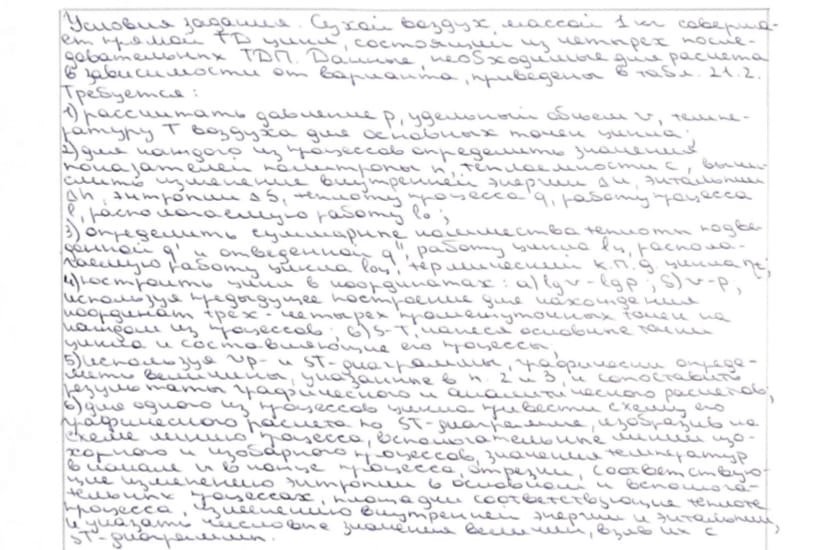 Условия задания. Сухой воздух массой 1 кг соверша-
ет прямой TD цикл, состоящий из четырех после-
довательных ТДП. Данные, необходимые для расчета
в зависимости от варианта, приведены в табл. 21.2.
Требуется:
1) рассчитать давление p, удельный объем v, темпе-
ратуру T воздуха для основных точек цикла;
2) для каждого из процессов определить значения
показателей политропы n, теплоемкости c, вычи-
слить изменение внутренней энергии Δu, энтальпии
Δh, энтропии Δs, теплоту процесса q, работу процесса
l, распологаемую работу l₀;
3) определить суммарные количества теплоты подве-
денной q' и отведенной q'', работу цикла lц, распола-
гаемую работу цикла l₀ц, термический к.п.д. цикла ηt;
4) построить цикл в координатах: а) lgv-lgp; б) v-p,
используя предыдущее построение для нахождения
координат трех-четырех промежуточных точек на
каждом из процессов; в) s-T, нанеся основные точки
цикла и составляющие его процессы;
5) используя vp- и sT-диаграммы, графически опреде-
лить величины, указанные в п. 2 и 3, и сопоставить
результаты графического и аналитического расчетов;
6) для одного из процессов цикла привести схему его
графического расчета по sT-диаграмме, изобразив на
схеме линию процесса, вспомогательные линии изо-
хорного и изобарного процессов, значения температур
в начале и в конце процесса, отрезки, соответствую-
щие изменению энтропии в основном и вспомога-
тельных процессах, площадки соответствующие теплоте
процесса, изменению внутренней энергии и энтальпии,
и указать числовые значения величин, взяв их с
sT-диаграммы.